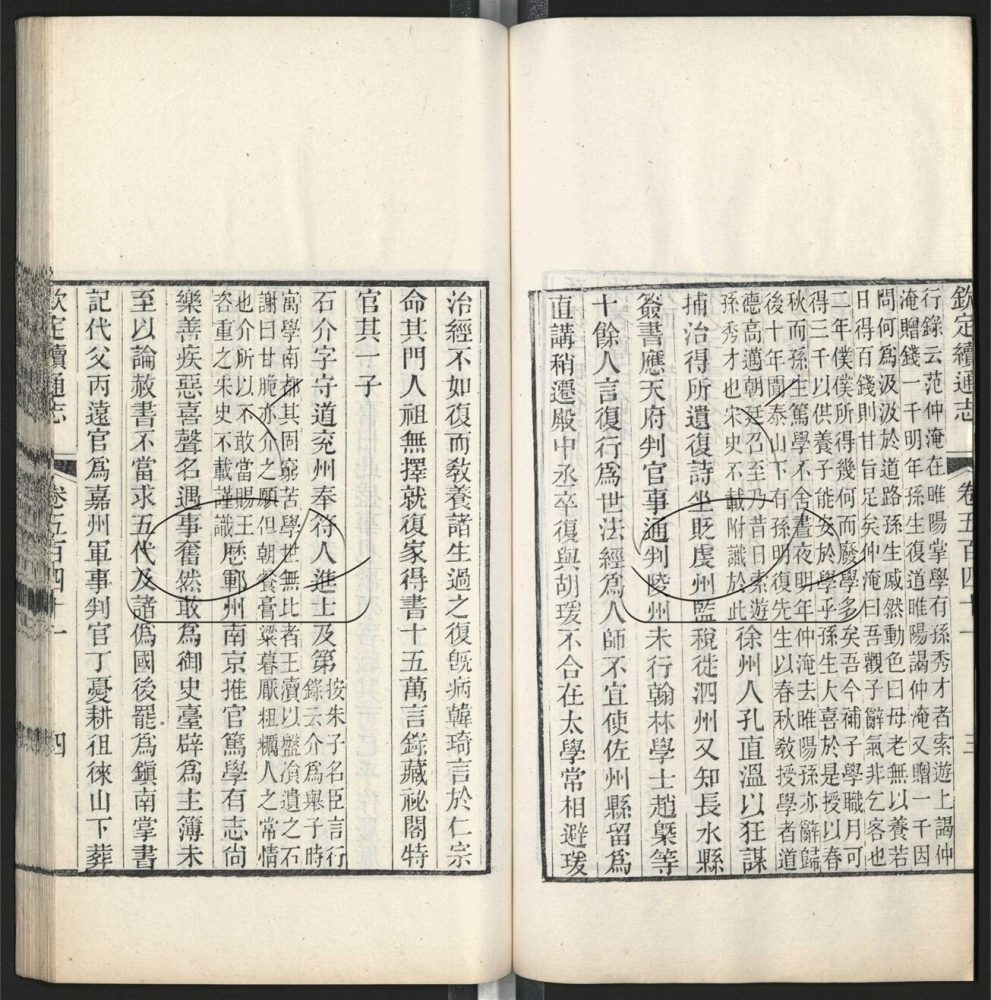 欽定續通志 卷五百四十一 三
行錄云范仲淹在睢陽掌學有孫秀才者索遊上謁仲
淹贈錢一千明年孫生復道睢陽謁仲淹又贈一千因
問何爲汲汲於道路孫生戚然動色曰母老無以養若
日得百錢則甘旨足矣仲淹曰吾觀子辭氣非乞客也
二年僕僕所得幾何而廢學多矣吾今補子學職月可
得三千以供養子能安於學乎孫生大喜於是授以春
秋而孫生篤學不舍晝夜明年仲淹去睢陽孫亦辭歸
後十年聞泰山下有孫明復先生以春秋敎授學者道
德高邁朝廷召至乃昔日索遊
孫秀才也宋史不載附識於此
徐州人孔直溫以狂謀
捕治得所遺復詩坐貶虔州監稅徙泗州又知長水縣
簽書應天府判官事通判陵州未行翰林學士趙槩等
十餘人言復行爲世法經爲人師不宜使佐州縣留爲
直講稍遷殿中丞卒復與胡瑗不合在太學常相避瑗
治經不如復而敎養諸生過之復旣病韓琦言於仁宗
命其門人祖無擇就復家得書十五萬言錄藏祕閣特
官其一子
石介字守道兗州奉符人進士及第
按朱子名臣言行
錄云介爲舉子時
寓學南都其固窮苦學世無比者王瀆以盤飡遺之石
謝曰甘脆亦介之願但朝饗膏粱暮厭粗糲人之常情
也介所以不敢當賜王
咨重之朱史不載謹識
歷鄆州南京推官篤學有志尙
樂善疾惡喜聲名遇事奮然敢爲御史臺辟爲主簿未
至以論赦書不當求五代及諸僞國後罷爲鎭南掌書
記代父丙遠官爲嘉州軍事判官丁憂耕徂徠山下葬
欽定續通志 卷五百四十一 四